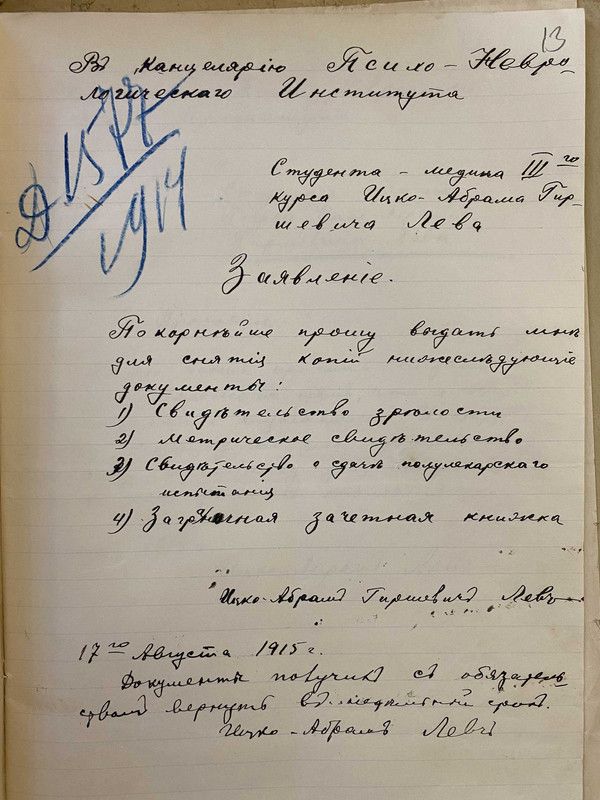 13
Въ Канцелярію Психо-Невро-
логическаго Института
Д. 1577
1914
Студента-медика III го
курса Ицко-Абрама Гир-
шевича Лева
Заявленіе.
Покорнѣйше прошу выдать мнѣ
для снятія копій нижеслѣдующіе
документы:
1) Свидѣтельство зрѣлости
2) Метрическое свидѣтельство
3) Свидѣтельство о сдачѣ полулекарскаго
испытанія
4) Заграничная зачетная книжка
Ицко-Абрамъ Гиршевичъ Левъ
17го Августа 1915 г.
Документы получилъ съ обязатель-
ствомъ вернуть въ недѣльный срокъ.
Ицко-Абрамъ Левъ